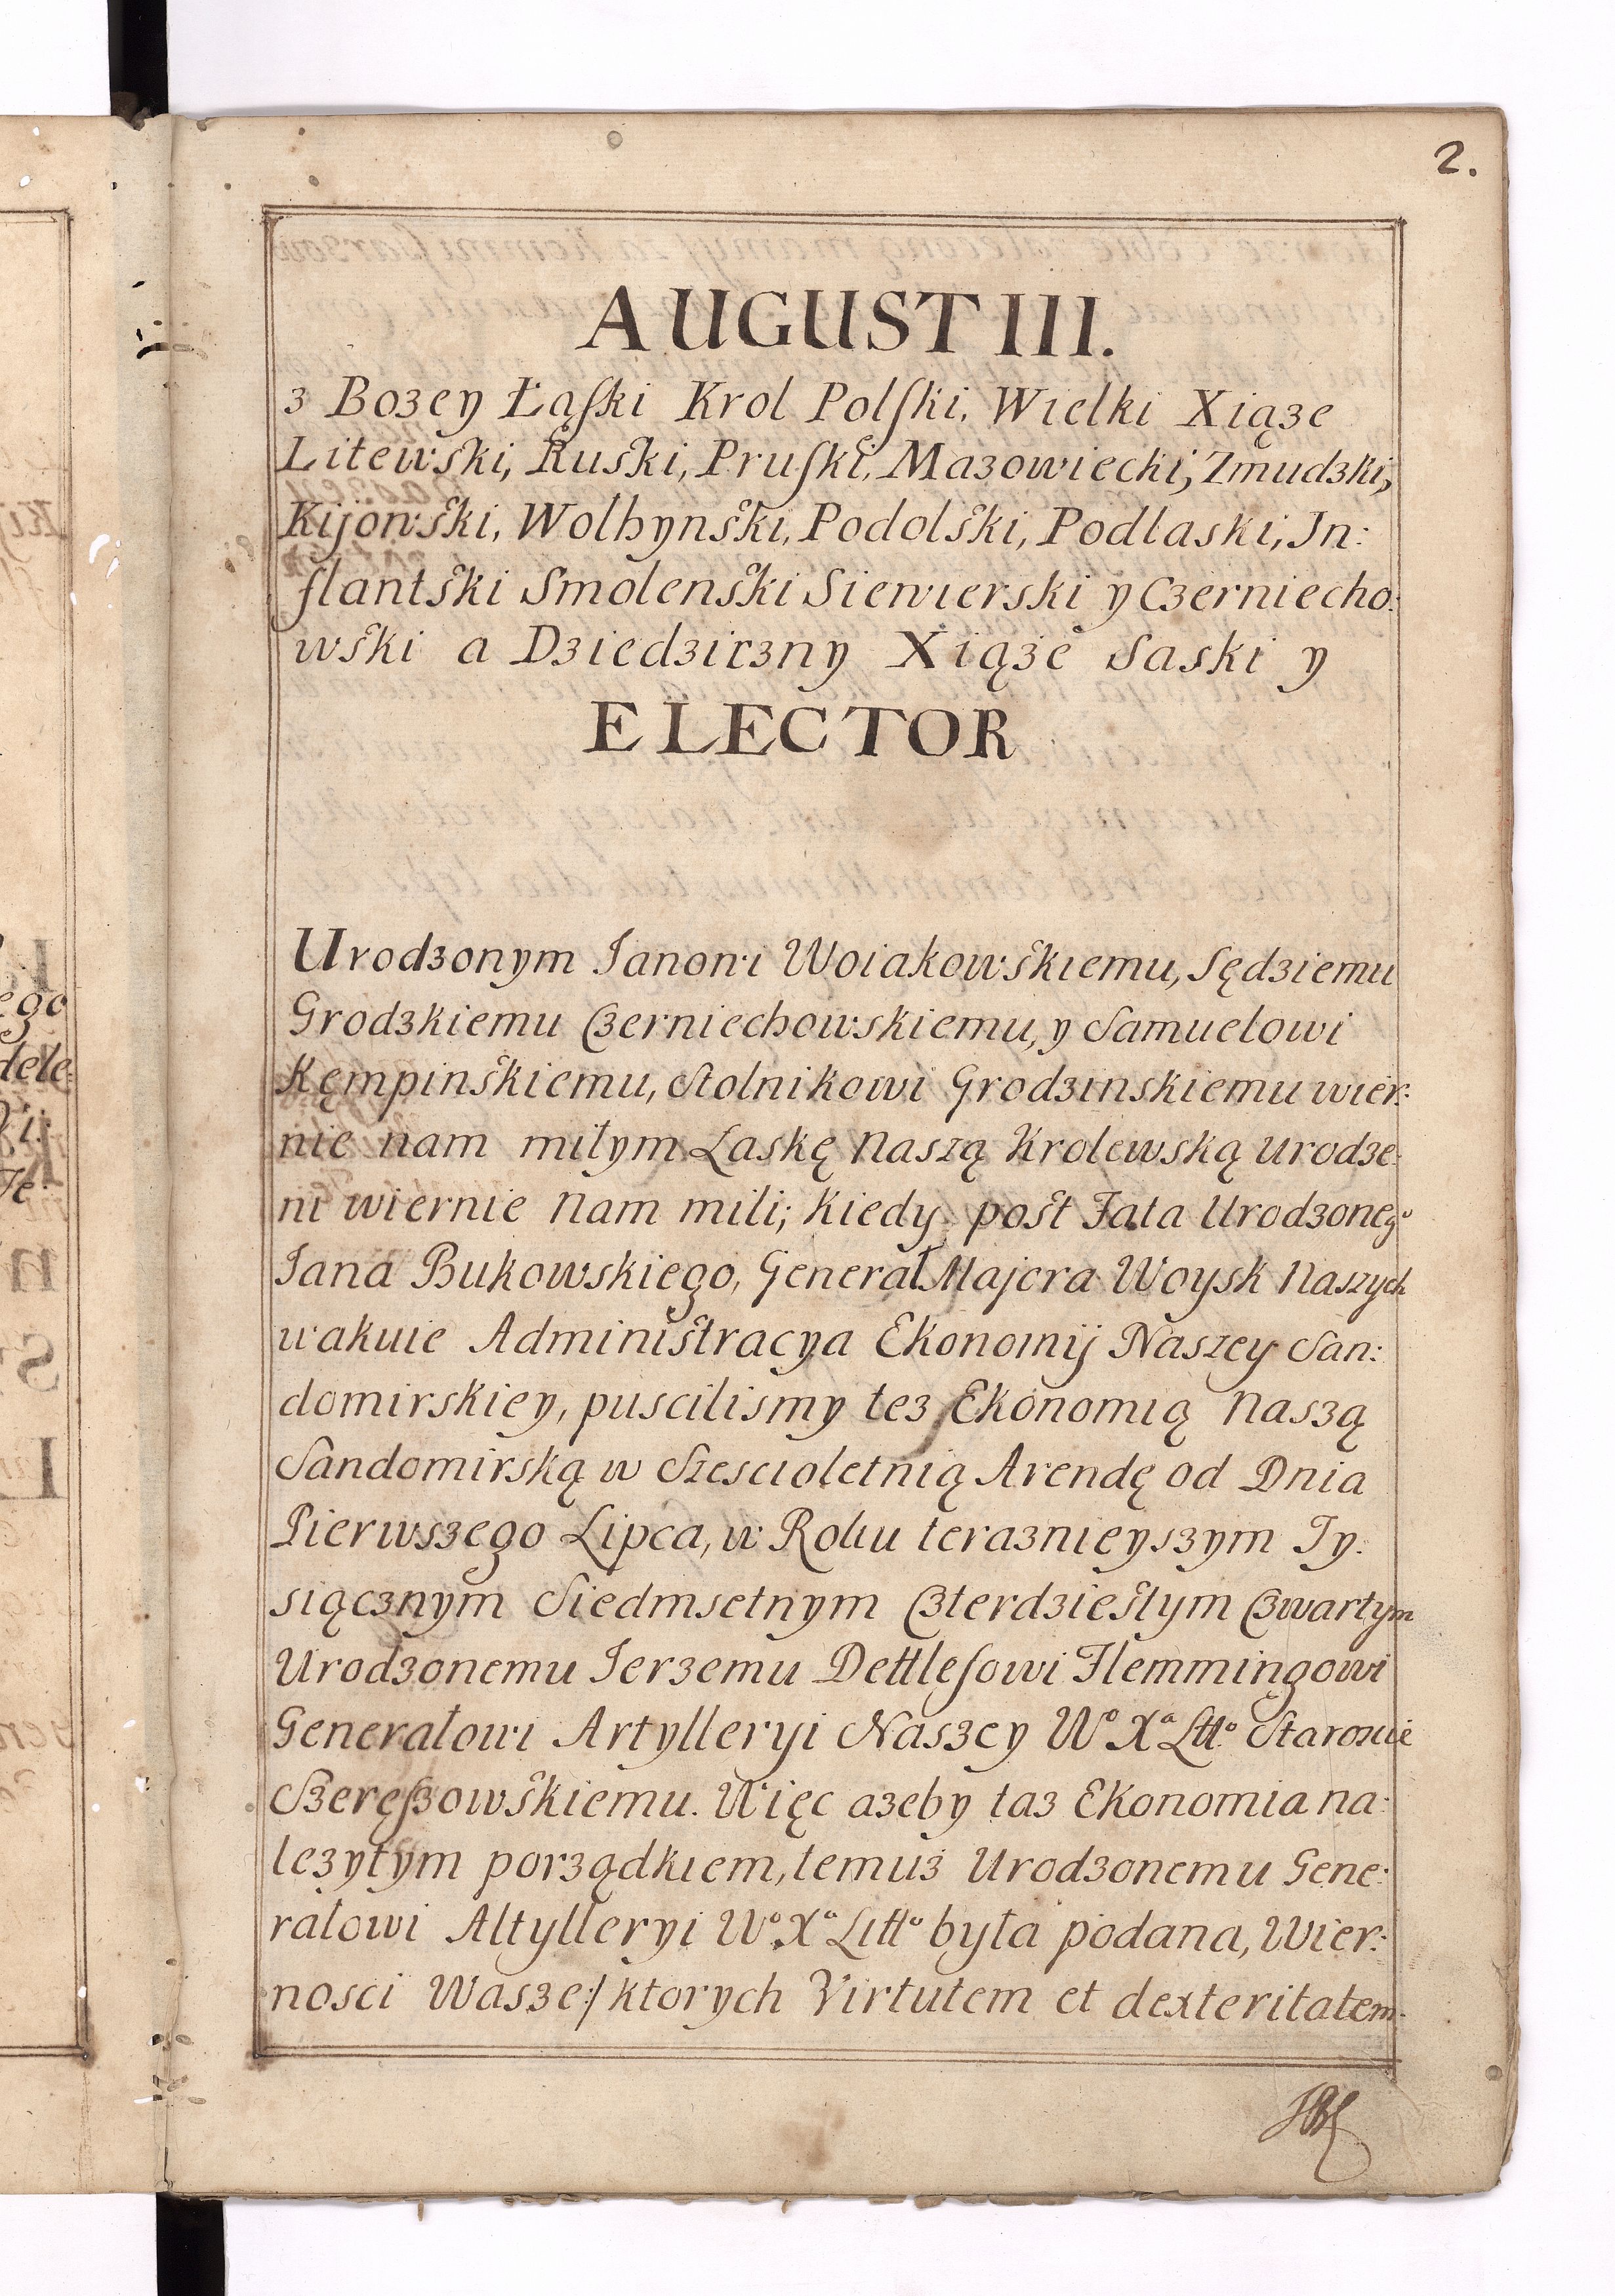 2.
AUGUST III.
z Bozey Łąski Krol Polski, Wielki Xiąze
Litewski, Ruski, Pruski, Mazowiecki, Zmudzki,
Kijowski, Wolhynski, Podolski, Podlaski, Jn:
flantski Smolenski Siewierski y Czerniecho:
wski a Dziedziczny Xiąze Saski y
ELECTOR
Urodzonym Janowi Woiakowskiemu, Sędziemu
Grodzkiemu Czerniechowskiemu, y Samuelowi
Kęmpinskiemu, Stolnikowi Grodzinskiemu wier:
nie nam miłym Laskę Naszą Krolewską Urodze:
ni wiernie Nam mili; Kiedy post Fata Urodzonego
Jana Bukowskiego, Generał Majora Woysk Naszych
wakuie Administracya Ekonomij Naszey San:
domirskiey, puscilismy tez Ekonomią Naszą
Sandomirską w Szescioletnią Arendę od Dnia
Pierwszego Lipca, w Roku teraznieyszym Ty:
siącznym Siedmsetnym Czterdziestym Czwartym
Urodzonemu Jerzemu Dettlefowi Flemmingowi
Generałowi Artylleryi Naszey Wo Xa Litto Staroscie
Szereszowskiemu. Więc azeby taz Ekonomia na:
lezytym porządkiem, temuz Urodzonemu Gene:
rałowi Altylleryi Wo Xa Litto była podana, Wier:
nosci Wasze:/ ktorych Virtutem et dexteritatem